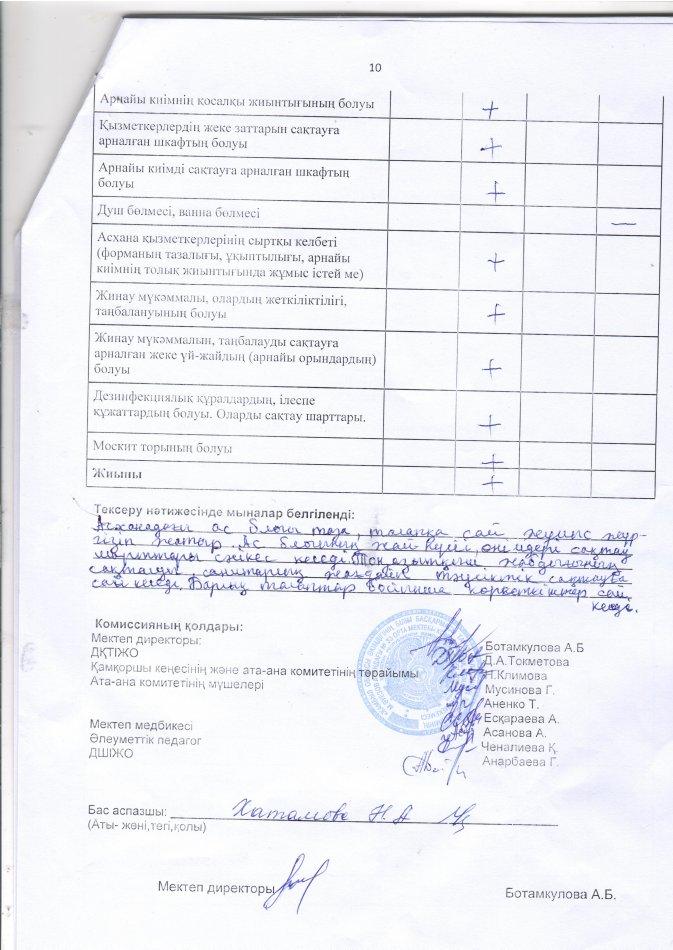 10
Арнайы киімнің қосалқы жиынтығының болуы +
Қызметкерлердің жеке заттарын сақтауға
арналған шкафтың болуы +
Арнайы киімді сақтауға арналған шкафтың
болуы +
Душ бөлмесі, ванна бөлмесі —
Асхана қызметкерлерінің сыртқы келбеті
(форманың тазалығы, ұқыптылығы, арнайы
киімнің толық жиынтығында жұмыс істей ме) +
Жинау мүкәммалы, олардың жеткіліктілігі,
таңбалануының болуы +
Жинау мүкәммалын, таңбалауды сақтауға
арналған жеке үй-жайдың (арнайы орындардың)
болуы +
Дезинфекциялық құралдардың, ілеспе
құжаттардың болуы. Оларды сақтау шарттары. +
Москит торының болуы +
Жиыны +
Тексеру нәтижесінде мыналар белгіленді:
Асханадағы ас блогы таза, талапқа сай жұмыс жүр-
гізіп жатыр. Ас блогының жай күйі, өнімдерді сақтау
сәйкес келеді.
сақталуы санитарлық жағдайы тәуліктік сақтауға
сай келеді. Барлық талаптар бойынша көрсеткіштер сай
келеді.
Комиссияның қолдары:
Мектеп директоры: Ботамкулова А.Б
ДҚТІЖО Д.А.Токметова
Қамқоршы кеңесінің және ата-ана комитетінің төрайымы Климова
Ата-ана комитетінің мүшелері Мусинова Г.
Аненко Т.
Есқараева А.
Мектеп медбикесі Асанова А.
Әлеуметтік педагог Ченалиева Қ.
ДШІЖО Анарбаева Г.
Бас аспазшы: Хатамова Н.А
(Аты- жөні,тегі,қолы)
Мектеп директоры Ботамкулова А.Б.